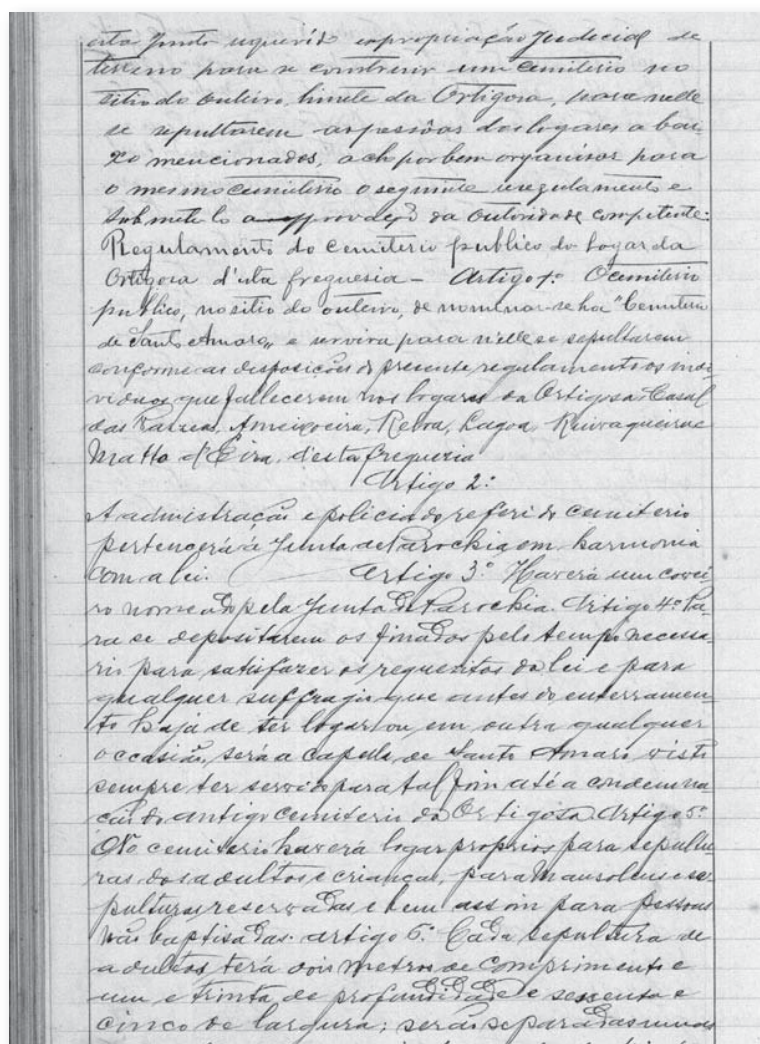 esta Junta requerido expropriação Judicial de
terreno para se construir um Cemiterio no
sitio do Outeiro, limite da Ortigosa, para nelle
se repultarem as pessôas dos logares a bai-
xo mencionados, acho por bem organisar para
o mesmo cemiterio o seguinte regulamento e
submetel-o a approvação da Outoridade competente:
Regulamento do Cemiterio publico do logar da
Ortigosa d'esta freguesia - Artigo 1.º O cemiterio
publico, no sitio do outeiro, denominar-se ha "Cemiterio
de Santo Amaro" e servirá para n'elle se sepultarem
conforme as disposições do presente regulamento os indi-
viduos que fallecerem nos logares da Ortigosa, Casal
das Varzeas, Ameixoeira, Lagoa, Ruivaqueira e
Matto d'Eira, d'esta freguezia
Artigo 2.º
A administração e policia do referido cemiterio
pertencerá á Junta de Parochia em harmonia
com a lei. Artigo 3.º Haverá um covei-
ro nomeado pela Junta de Parochia. Artigo 4.º Pa-
ra se depositarem os finados pelo tempo necessa-
rio para satisfazer os requesitos da lei e para
qualquer suffragio que antes do enterramen-
to haja de ter logar ou em outra qualquer
occasião, será a capella de Santo Amaro visto
sempre ter servido para tal fim até a condemna-
ção do antigo cemiterio da Ortigosa. Artigo 5.º
No cemiterio haverá logar proprios para sepultu-
ras dos adultos e crianças, para Mausoleus e se-
pulturas reservadas e bem assim para pessoas
não baptisadas. Artigo 6.º Cada sepultura de
adultos terá dois metros de comprimento e
um e trinta de profundidade e sessenta e
cinco de largura; serão separadas umas